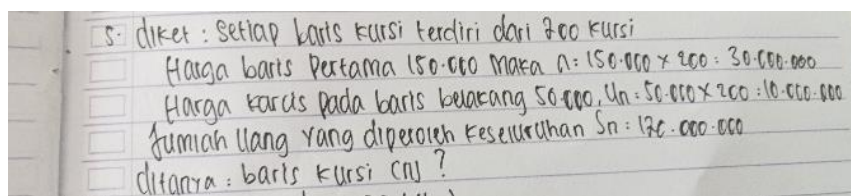 5. diket : Setiap baris kursi terdiri dari 200 kursi
Harga baris Pertama 150.000 maka a = 150.000 x 200 = 30.000.000
Harga karcis pada baris belakang 50.000, Un = 50.000 x 200 = 10.000.000
Jumlah Uang Yang diperoleh Keseluruhan Sn = 120.000.000
ditanya : baris kursi (n) ?